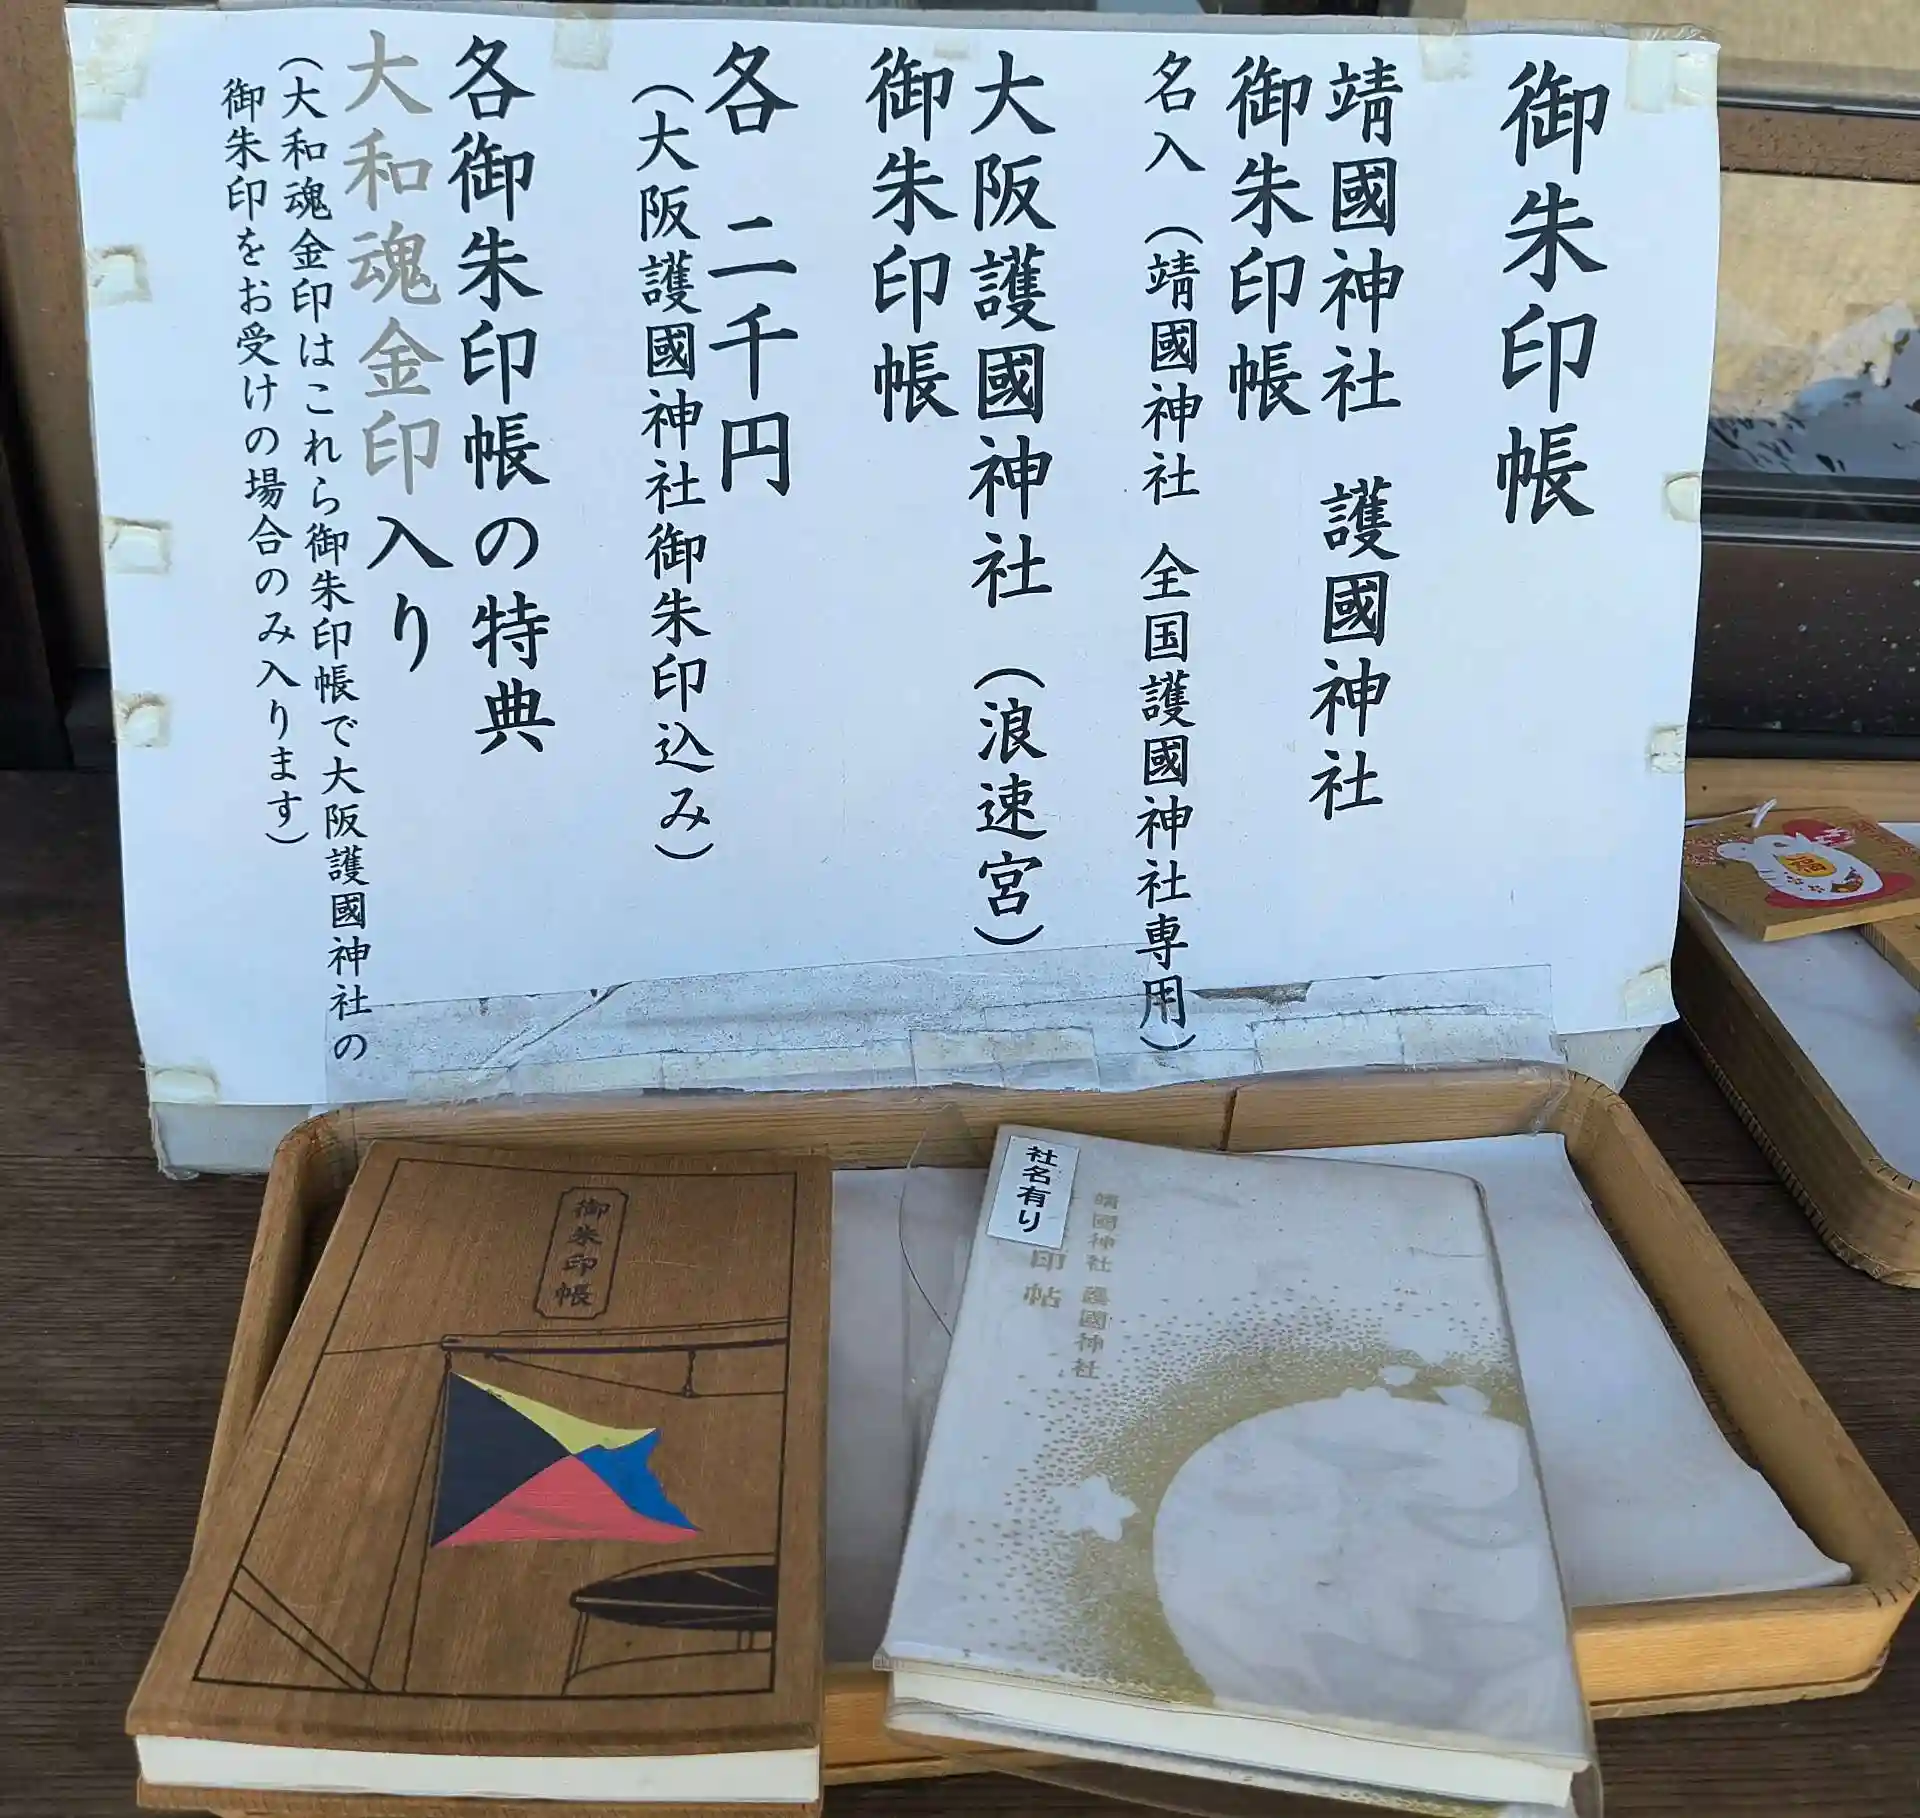 御朱印帳
靖國神社　護國神社
御朱印帳
名入（靖國神社　全国護國神社専用）
大阪護國神社（浪速宮）
御朱印帳
各　二千円
（大阪護國神社御朱印込み）
各御朱印帳の特典
大和魂金印入り
（大和魂金印はこれら御朱印帳で大阪護國神社の
御朱印をお受けの場合のみ入ります）
御朱印帳
社名有り
靖國神社 護國神社
印帖